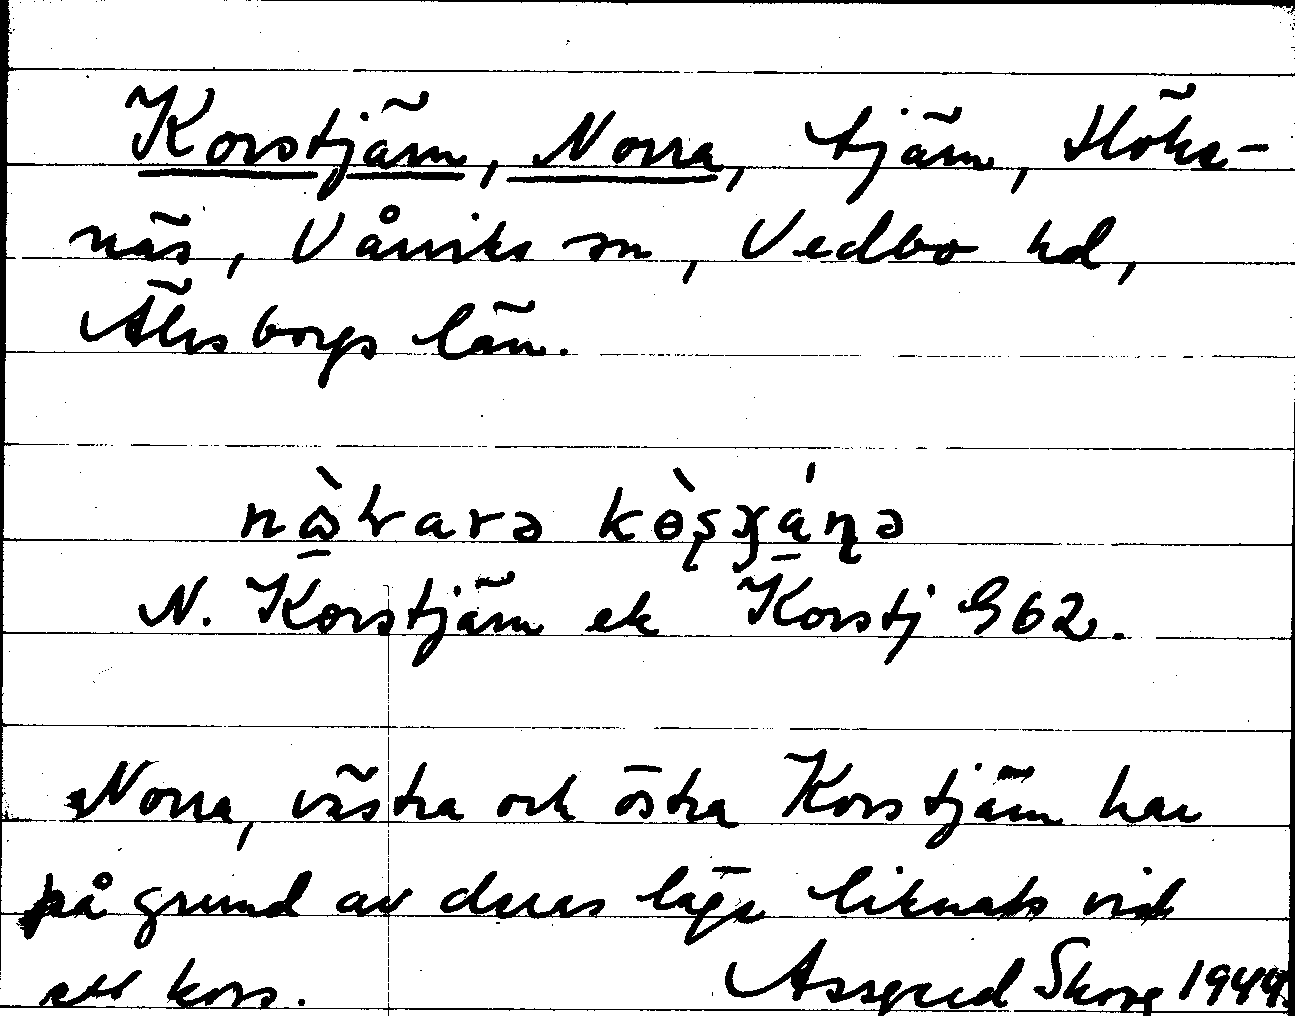 Korstjärn, Norra, tjärn, Höks-
näs, Vårviks sn, Vedbo hd,
Älvsborgs län.
N. Korstjärn ek Korstj G 62.
Norra, västra och östra Korstjärn har
på grund av deras läge liknats vid
ett kors. Assgerd Skog 1944.